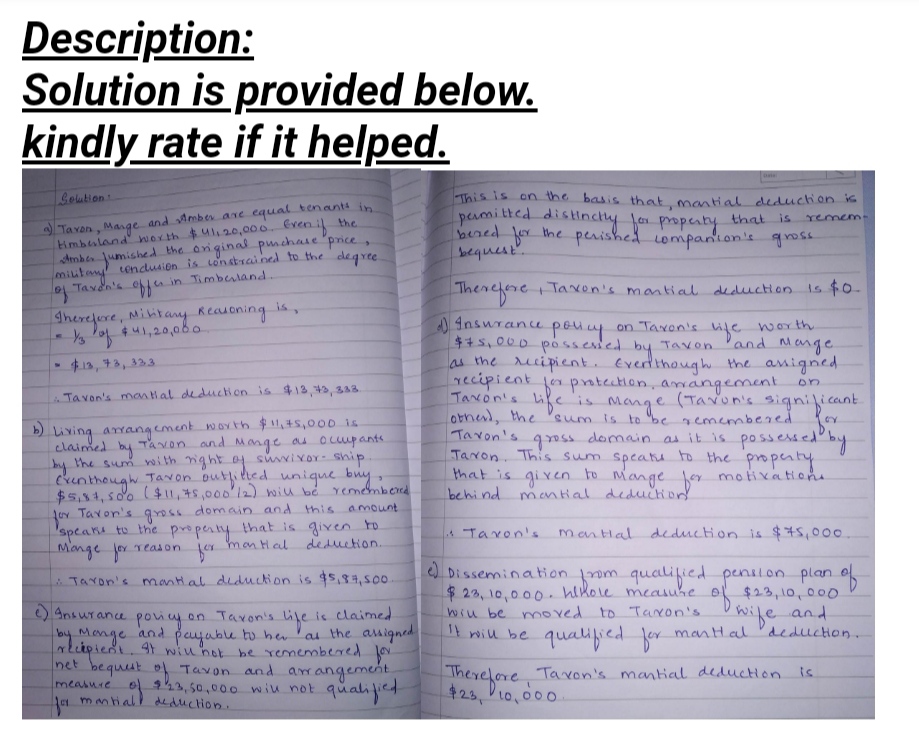 Description:
Solution is provided below.
kindly rate if it helped.
Solution:
a) Tavon, Marge and Amber are equal tenants in
timberland worth $41,20,000. Even if the
Amber furnished the original purchase price,
military conclusion is constrained to the degree
of Tavon's offer in Timberland.
Therefore, Military Reasoning is,
= 1/3 of $41,20,000
= $13,73,333
∴ Tavon's marital deduction is $13,73,333
b) Living arrangement worth $11,75,000 is
claimed by Tavon and Marge as occupants
by the sum with right of survivor-ship.
Eventhough Tavon outfitted unique buy,
$5,87,500 ($11,75,000/2) will be remembered
for Tavon's gross domain and this amount
speaks to the property that is given to
Marge for reason for marital deduction.
∴ Tavon's marital deduction is $5,87,500.
c) Insurance policy on Tavon's life is claimed
by Marge and payable to her as the assigned
recipient. It will not be remembered for
net bequest of Tavon and arrangement
measure of $23,50,000 will not qualified
for marital deduction.
This is on the basis that, marital deduction is
permitted distinctly for property that is remem-
bered for the perished companion's gross
bequest.
Therefore, Tavon's marital deduction is $0.
d) Insurance policy on Tavon's life worth
$75,000 possessed by Tavon and Marge
as the recipient. Eventhough the assigned
recipient for protection, arrangement on
Tavon's life is Marge (Tavon's significant
other), the sum is to be remembered for
Tavon's gross domain as it is possessed by
Tavon. This sum speaks to the property
that is given to Marge for motivations
behind marital deduction
∴ Tavon's marital deduction is $75,000.
e) Dissemination from qualified pension plan of
$23,10,000. Whole measure of $23,10,000
will be moved to Tavon's wife and
It will be qualified for marital deduction.
Therefore, Tavon's marital deduction is
$23,10,000.